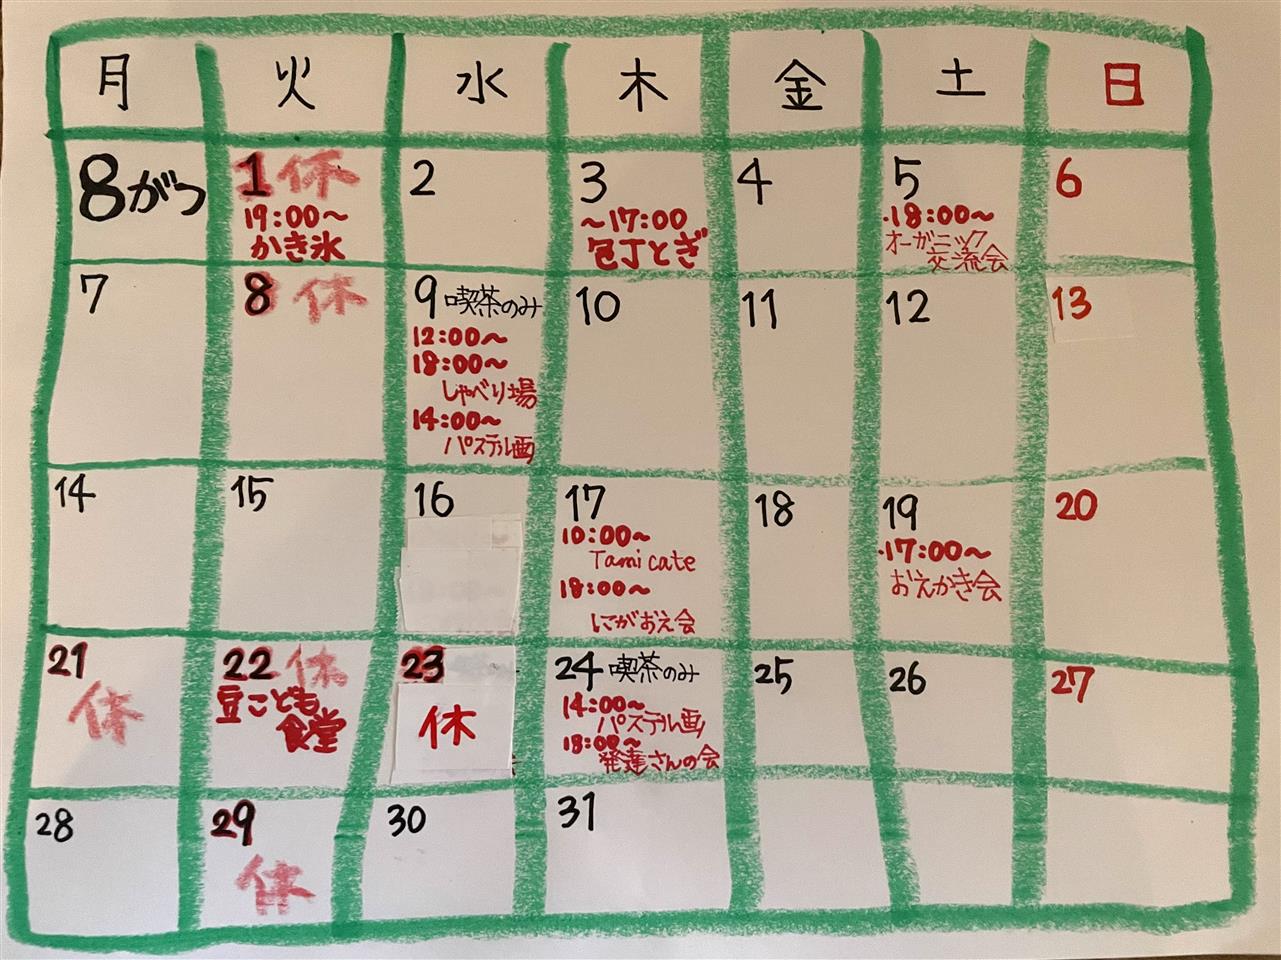 月 火 水 木 金 土 日
8がつ
1 休
19:00～
かき氷
2
3
～17:00
包丁とぎ
4
5
・18:00～
オーガニック
交流会
6
7
8 休
9 喫茶のみ
12:00～
18:00～
しゃべり場
14:00～
パステル画
10
11
12
13
14
15
16
17
10:00～
Tami cate
18:00～
にがおえ会
18
19
・17:00～
おえかき会
20
21
休
22 休
豆こども
食堂
23
休
24 喫茶のみ
14:00～
パステル画
18:00～
発達さんの会
25
26
27
28
29
休
30
31